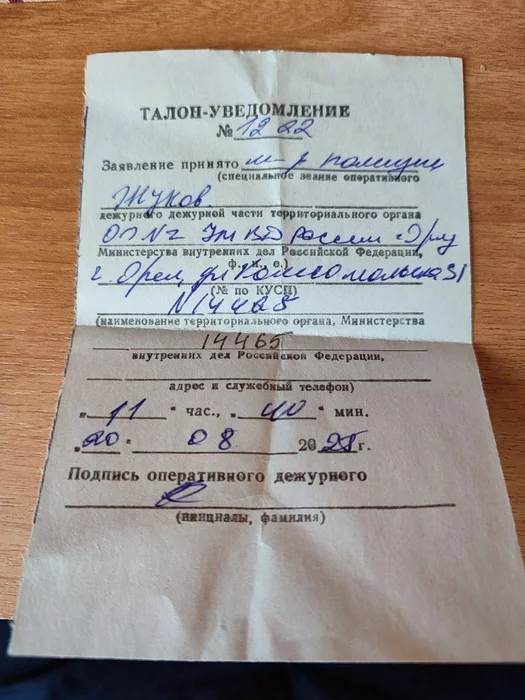 ТАЛОН-УВЕДОМЛЕНИЕ
№ 1222
Заявление принято м-р полиции
(специальное звание оперативного
Жуков
дежурного дежурной части территориального органа
ОП №2 УМВД России г. Орлу
Министерства внутренних дел Российской Федерации,
ф. и. о.)
г. Орел, ул Комсомольская 31
(№ по КУСП)
N 14465
(наименование территориального органа, Министерства
14465
внутренних дел Российской Федерации,
адрес и служебный телефон)
„ 11 “ час., „ 40 “ мин.
„ 20 “ 08 2025 г.
Подпись оперативного дежурного
(инициалы, фамилия)